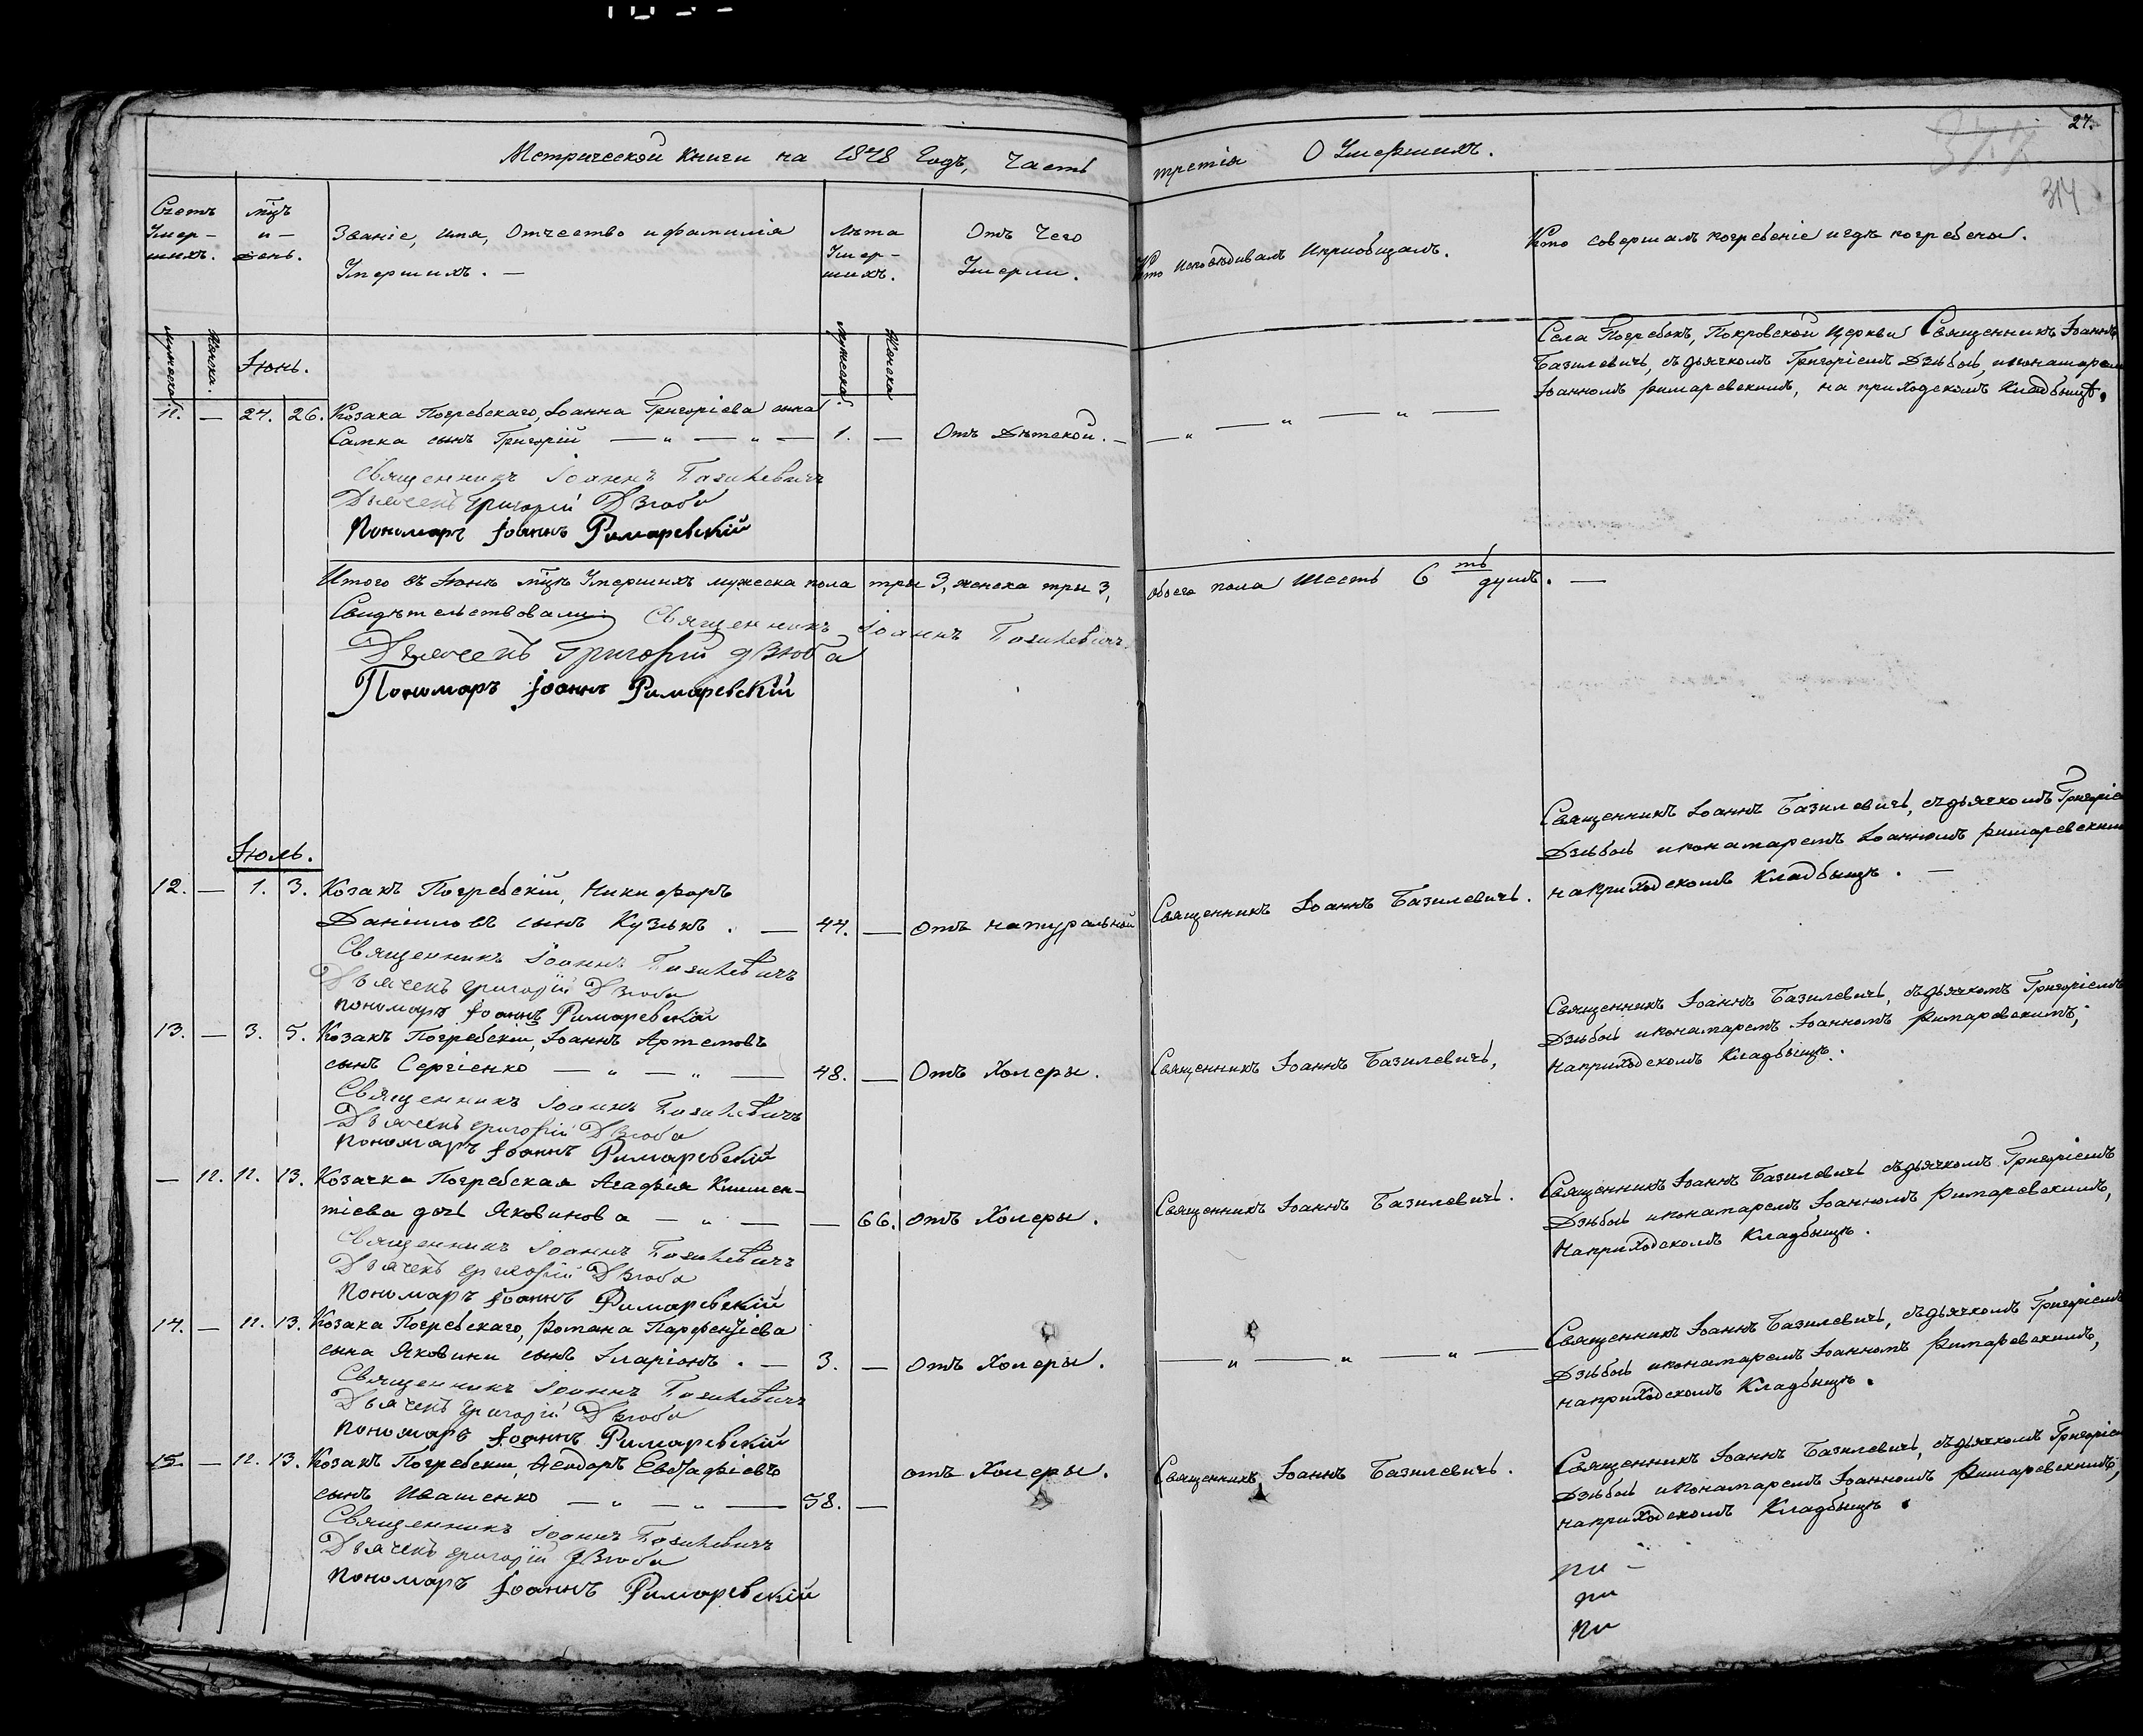 27.
314
Метрической Книги на 1848 Годъ, Часть третія О Умершихъ.
Счетъ Умер-шихъ.
мц̃ъ и день.
Званіе, имя, Отчество и фамилія
Умершихъ. —
Лѣта Умер-шихъ.
Отъ Чего
Умерли.
Кто исповѣдивалъ и пріобщалъ.
Кто совершалъ погребеніе и гдѣ погребены.
мужеска
Женска.
Іюнь.
мужеска
Женска
11. — 24. 26. Козака Погребскаго, Іоанна Григоріева сына
Самка сынъ Григорій — „ — „ — 1. — Отъ Дѣтской. — — „ — „ —
Села Погребокъ, Покровской Церкви Священникъ Іоаннъ
Базилевичь, съ дьячкомъ Григоріемъ Дзюбою, и понамаремъ
Іоанномъ Римаревскимъ, на приходскомъ Кладбищѣ.
Священникъ Іоаннъ Базилевичъ
Дьячекъ Григорій Дзюба
Пономаръ Іоаннъ Римаревскій
Итого въ Іюнѣ мц̃ѣ Умершихъ мужеска пола три 3, женска три 3, обоего пола Шесть 6 ть душъ. —
Свидѣтельствовали: Священникъ Іоаннъ Базилевичъ
Дьячекъ Григорій Дзюба
Пономаръ Іоаннъ Римаревскій
Іюль.
12. — 1. 3. Козакъ Погребскій, Никифоръ
Даніиловъ сынъ Кузькъ. — 44. — Отъ натуральной Священникъ Іоаннъ Базилевичь.
Священникъ Іоаннъ Базилевичь, съ дьячкомъ Григоріе
Дзюбою и понамаремъ Іоанномъ Римаревским
на Приходскомъ Кладбищѣ. —
Священникъ Іоаннъ Базилевичъ
Дьячекъ Григорій Дзюба
пономаръ Іоаннъ Римаревскій
13. — 3. 5. Козакъ Погребскій, Іоаннъ Артемовъ
сынъ Сергіенко — „ — „ — 48. — Отъ Холеры. Священникъ Іоаннъ Базилевичь,
Священникъ Іоаннъ Базилевичь, съ дьячкомъ Григоріемъ
Дзюбою и понамаремъ Іоанномъ Римаревскимъ,
на приходскомъ Кладбищѣ.
Священникъ Іоаннъ Базилевичъ
Дьячекъ Григорій Дзюба
пономаръ Іоаннъ Римаревскій
— 11. 11. 13. Козачка Погребская Агафія Климен-
тіева дочь Яковинова — „ — — 66. отъ Холеры. Священникъ Іоаннъ Базилевичь.
Священникъ Іоаннъ Базилевичь съ дьячкомъ Григоріемъ
Дзюбою и понамаремъ Іоанномъ Римаревскимъ,
На приходскомъ Кладбищѣ.
Священникъ Іоаннъ Базилевичъ
Дьячекъ Григорій Дзюба
Пономаръ Іоаннъ Римаревскій
14. — 11. 13. Козака Погребскаго, Романа Парфентіева
сына Яковини сынъ Іларіонъ. — 3. — отъ Холеры. — „ — „ — „ —
Священникъ Іоаннъ Базилевичь, съ дьячкомъ Григоріемъ
Дзюбою и понамаремъ Іоанномъ Римаревскимъ,
на приходскомъ Кладбищѣ.
Священникъ Іоаннъ Базилевичъ
Дьячекъ Григорій Дзюба
пономаръ Іоаннъ Римаревскій
15. — 11. 13. Козакъ Погребскій, Ѳеодоръ Евстафіевъ
сынъ Ивашенко — „ — „ — 58. — отъ Холеры. Священникъ Іоаннъ Базилевичь.
Священникъ Іоаннъ Базилевичь, съ дьячкомъ Григоріе
Дзюбою и Понамаремъ Іоанномъ Римаревскимъ,
на приходскомъ Кладбищѣ.
Священникъ Іоаннъ Базилевичъ
Дьячекъ Григорій Дзюба
пономаръ Іоаннъ Римаревскій